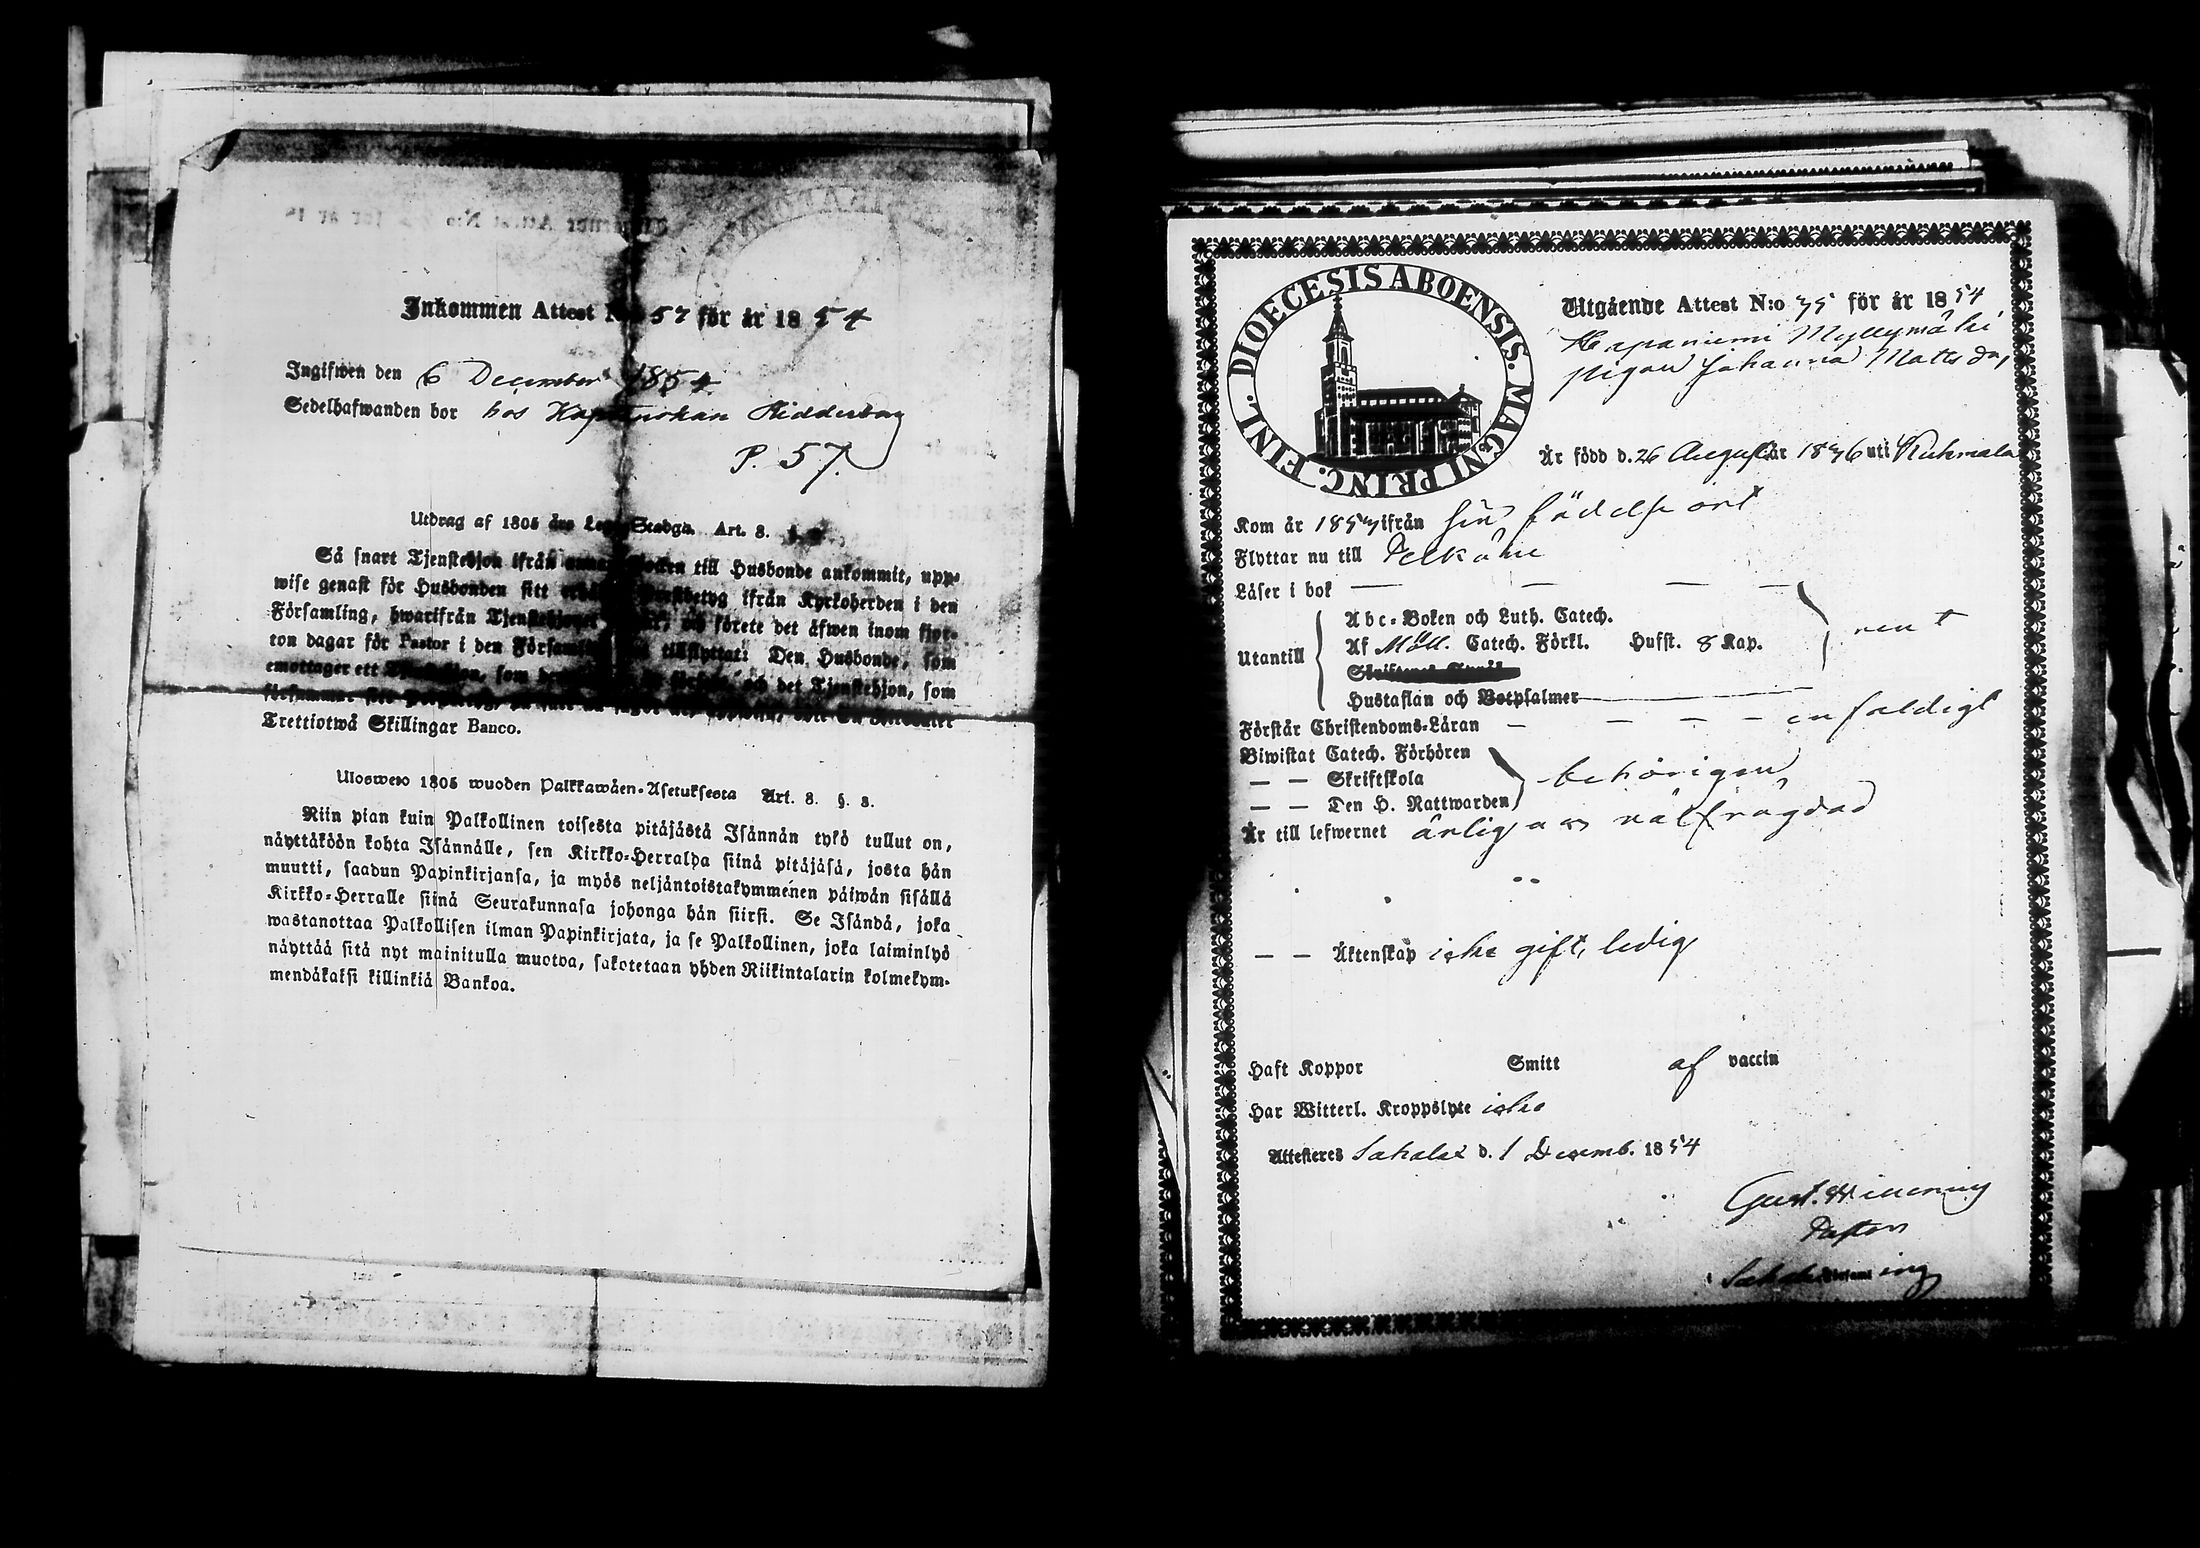 Inkommen Attest N:o 57 för år 1854
Ingifwen den 6 December 1854
Sedelhafwanden bor hos Ridderborg
P. 57.
Utdrag af 1805 års Lego-Stadga. Art. 8. §.
Så snart Tjenstehjon ifrån annan Socken till Husbonde ankommit, upp-
wise genast för Husbonden sitt Prestbetyg ifrån Kyrkoherden i den
Församling, hwarifrån Tjenstehjonet och förete det äfwen inom fjor-
ton dagar för Pastor i den Församling tillflyttat: Den Husbonde, som
emottager ett Tjenstehjon, som och det Tjenstehjon, som
Trettiotwå Skillingar Banco.
Ulosweto 1805 wuoden Palkkawäen-Asetuksesta Art. 8. §. 8.
Niin pian kuin Palkollinen toisesta pitäjästä Isännän tykö tullut on,
näyttäköön kohta Isännälle, sen Kirkko-Herralda siinä pitäjäsä, josta hän
muutti, saadun Papinkirjansa, ja myös neljäntoistakymmenen päiwän sisällä
Kirkko-Herralle siinä Seurakunnasa johonga hän siirsi. Se Isändä, joka
wastanottaa Palkollisen ilman Papinkirjata, ja se Palkollinen, joka laiminlyö
näyttää sitä nyt mainitulla muotoa, sakotetaan yhden Riikintalarin kolmekym-
mendäkaksi killinkiä Bankoa.
DIOECESIS ABOENSIS. MAGNI PRINC. FINL.
Utgående Attest N:o 75 för år 1854
Hapaniemi Myllymäki
pigan Johanna Matts dr
Är född d. 26 Augusti år 1836 uti Kuhmala
Kom år 1853 ifrån sin födelse ort
Flyttar nu till Pelkäne
Läser i bok — — — —
Utantill
Abc-Boken och Luth. Catech.
Af Möll. Catech. Förkl. Husst. 8 Kap.
rent
Hustaflan och Botpsalmer
Förstår Christendoms-Läran — — — — enfaldigt
Biwistat Catech. Förhören
— — Skriftskola
behörigen
— — Den H. Nattwarden
Är till lefwernet ärlig och välfrägdad
— — Äktenskap icke gift, ledig
Haft Koppor Smitt af vaccin
Har Witterl. Kroppslyte icke
Attesteres Sahalax d. 1 Decemb. 1854
Gust.
Pastor